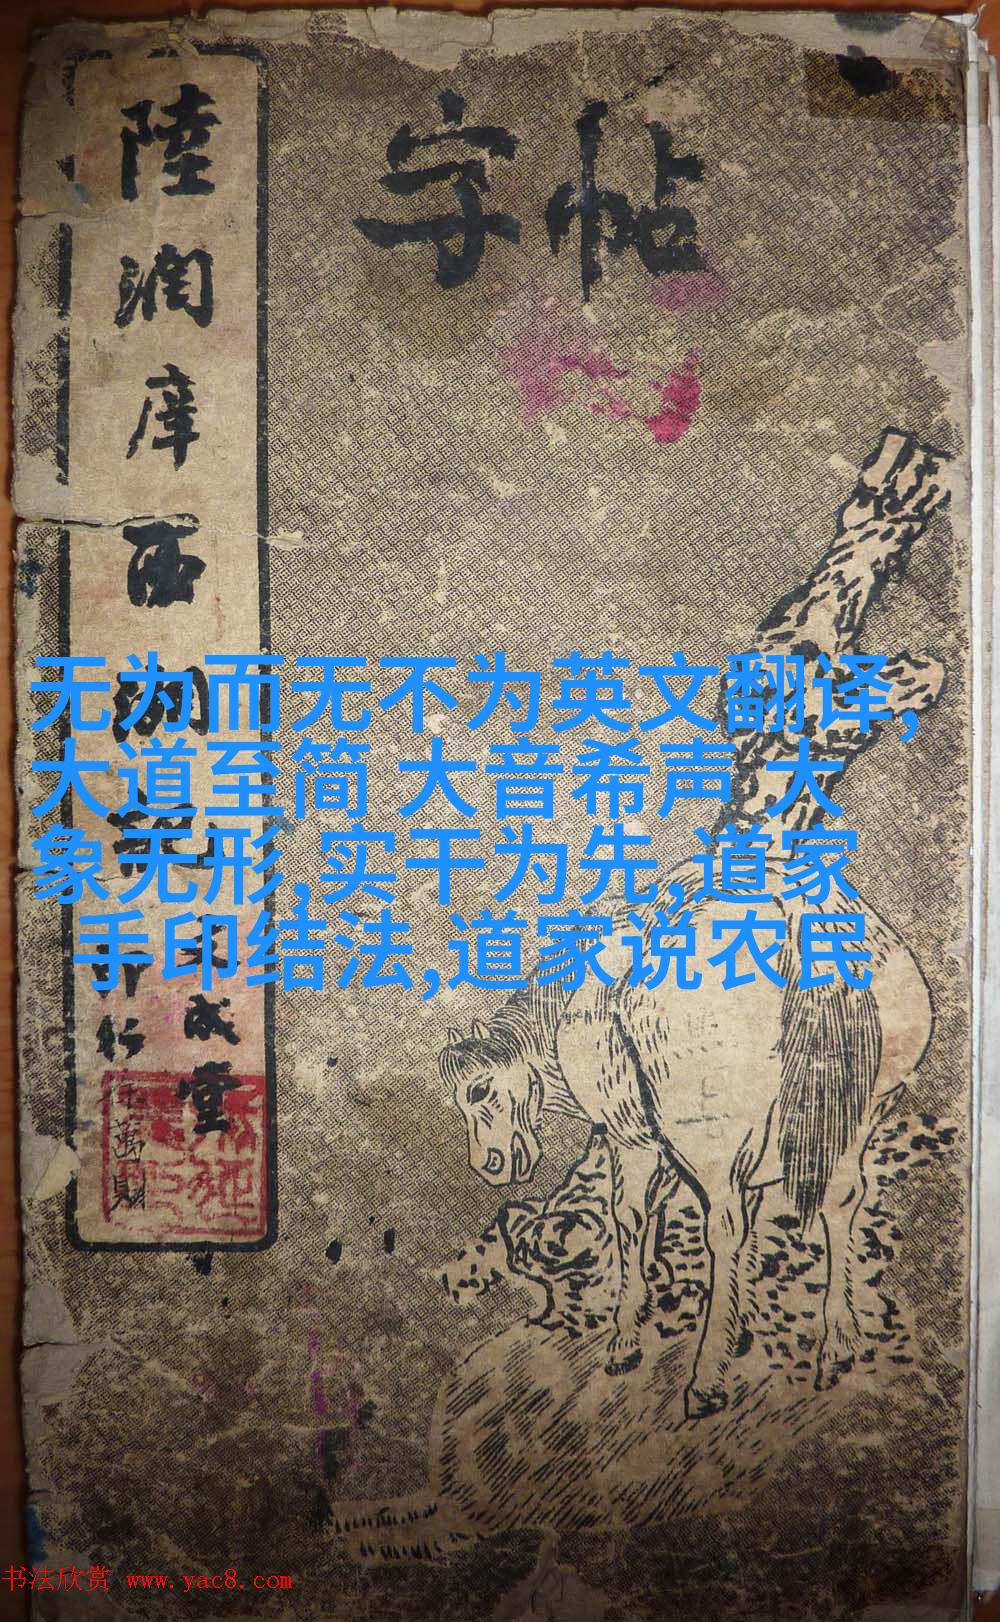 字帖
陸潤庠西湖
成堂
印行
徐萬財
无为而无不为英文翻译,
大道至简 大音希声 大
象无形,实干为先,道家
手印结法,道家说农民
书法欣赏 www.yac8.com